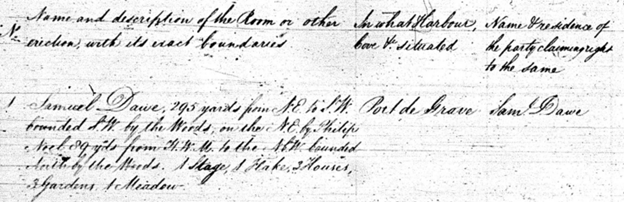 No Name and description of the Room or other In what Harbour, Name & residence of
erection, with its exact boundaries Cove &c situated the party claiming right
to the same
1 Samuel Dawe, 295 yards from N.E. to S.W. Port de Grave Saml Dawe
bounded S.W. by the Woods, on the N.E. by Philip
Noel 89 yds from H.W.M. to the N.W. bounded
North by the Woods. 1 Stage, 1 Flake, 3 Houses,
3 Gardens, 1 Meadow.